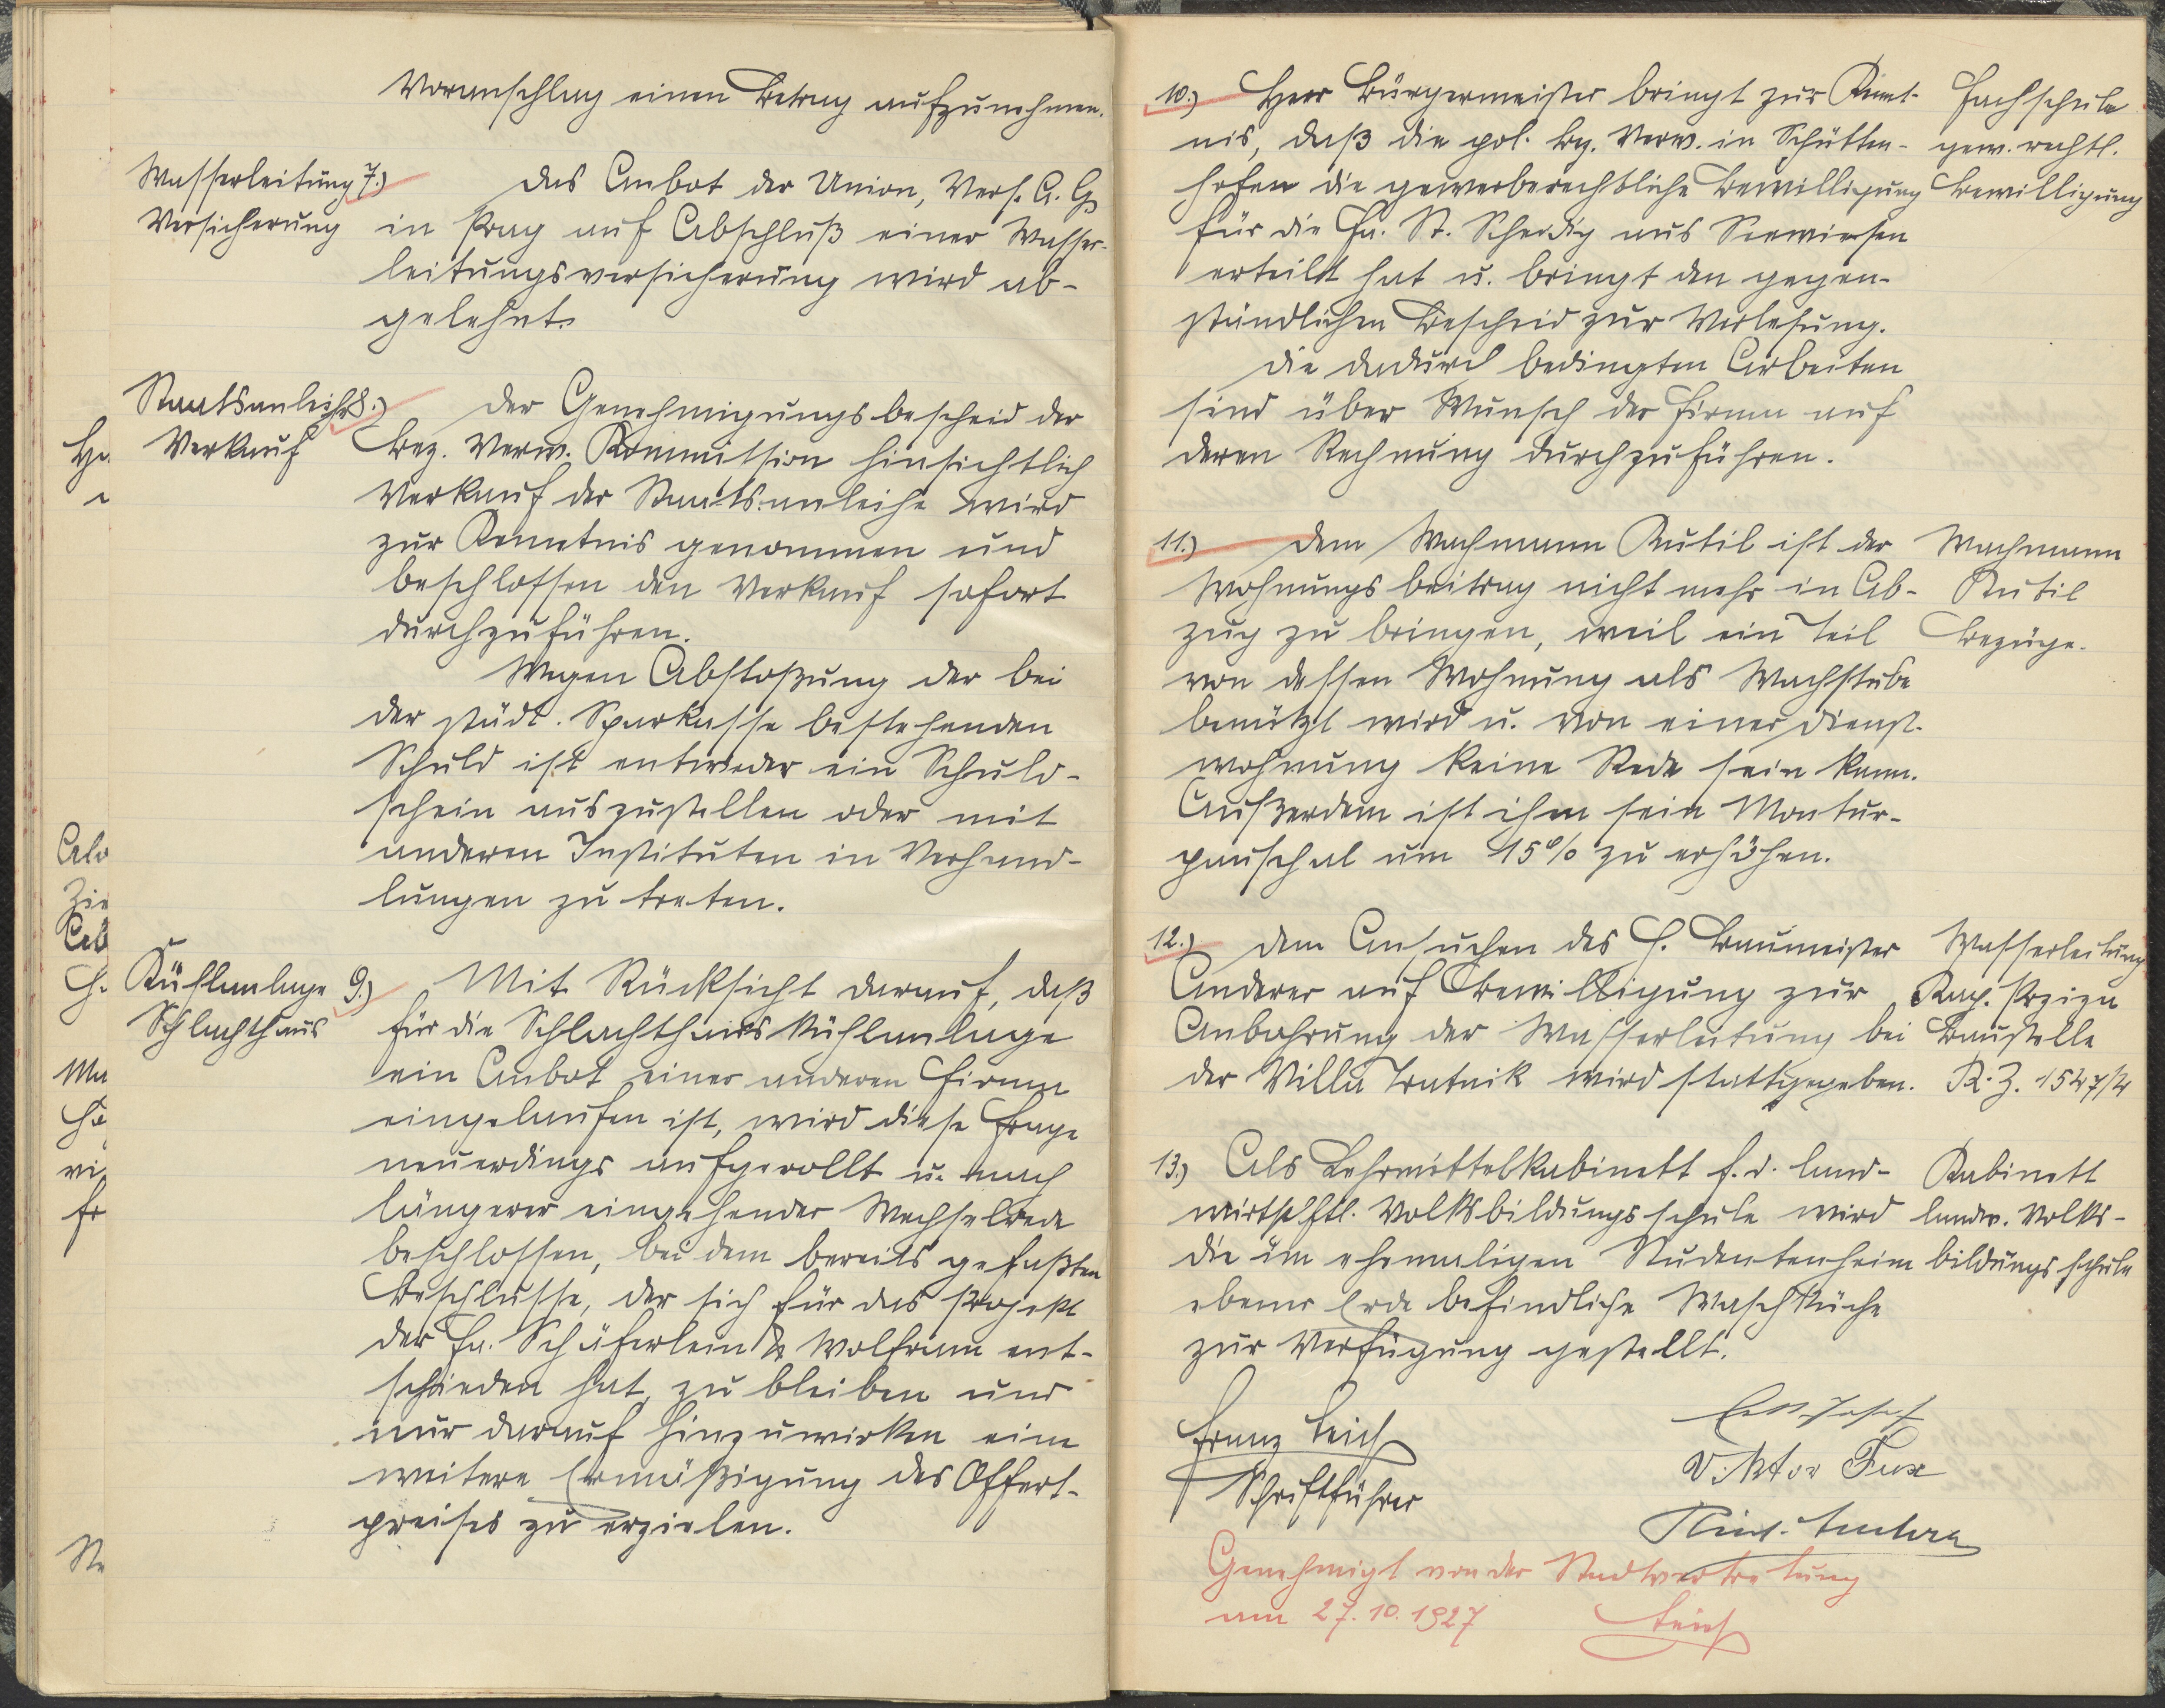 Voranschlag einen Betrag aufzunehmen.
Wasserleitung
Versicherung
7.) Das Anbot der Union, Vers. A. G.
in Prag auf Abschluß einer Wasser-
leitungsversicherung wird ab-
gelehnt.
Staatsanleihe
Verkauf
8.) Der Genehmigungsbescheid der
Bez. Verw. Kommission hinsichtlich
Verkauf der Staatsanleihe wird
zur Kenntnis genommen und
beschlossen den Verkauf sofort
durchzuführen.
Wegen Abstoßung der bei
der städt. Sparkasse bestehenden
Schuld ist entweder ein Schuld-
schein auszustellen oder mit
anderen Instituten in Verhand-
lungen zu treten.
Kühlanlage
Schlachthaus
9.) Mit Rücksicht darauf, daß
für die Schlachthauskühlanlage
ein Anbot einer anderen Firma
eingelaufen ist, wird diese Frage
neuerdings aufgerollt u. nach
längerer eingehender Wechselrede
beschlossen, bei dem bereits gefaßten
Beschlusse, der sich für das Projekt
der Fa. Schäferlein & Wolfram ent-
schieden hat, zu bleiben und
nur darauf hinzuwirken eine
weitere Ermäßigung des Offert-
preises zu erzielen.
10.) Herr Bürgermeister bringt zur Kennt-
nis, daß die pol. Bez. Verw. in Schütten-
hofen die gewerberechtliche Bewilligung
für die Fa. St. Scheidig aus Seewiesen
erteilt hat u. bringt den gegen-
ständlichen Bescheid zur Verlesung.
Die dadurch bedingten Arbeiten
sind über Wunsch der Firma auf
deren Rechnung durchzuführen.
Fachschule
gew. rechtl.
Bewilligung
11.) Dem Wachmann Kutil ist der
Wohnungsbeitrag nicht mehr in Ab-
zug zu bringen, weil ein Teil
von dessen Wohnung als Wachstube
benützt wird u. von einer Dienst-
wohnung keine Rede sein kann.
Außerdem ist ihm sein Montur-
pauschal um 15% zu erhöhen.
Wachmann
Kutil
Bezüge.
12.) Dem Ansuchen des H. Baumeister
Anderer auf Bewilligung zur
Anbohrung der Wasserleitung bei
der Villa Tratnik wird stattgegeben.
Wasserleitung
Baustelle
R.Z. 1547/4
13.) Als Lehrmittelkabinett f. d. land-
wirtschftl. Volksbildungsschule wird
die im ehemaligen Studentenheim
ebener Erde befindliche Waschküche
zur Verfügung gestellt.
Kabinett
landw. Volks-
bildungsschule
Franz Teich
Schriftführer
Josef
Viktor Fux
Genehmigt von der Stadtvertretung
am 27.10.1927
Teich